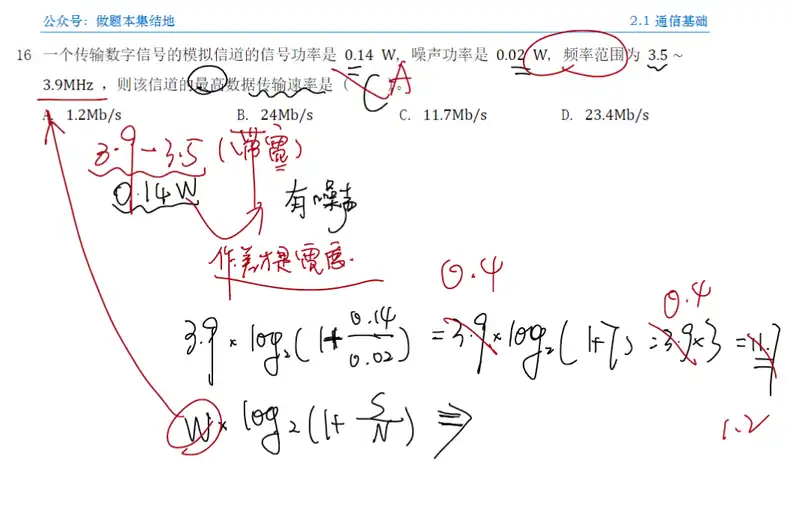 公众号：做题本集结地 2.1 通信基础
16 一个传输数字信号的模拟信道的信号功率是 0.14 W，噪声功率是 0.02 W，频率范围为 3.5 ~
3.9MHz ，则该信道的最高数据传输速率是（ C A ）。
A. 1.2Mb/s B. 24Mb/s C. 11.7Mb/s D. 23.4Mb/s
3.9-3.5 (带宽)
0.14W
有噪声
作差才是宽度.
0.4
0.4
3.9 × log₂(1+0.14/0.02) = 3.9 × log₂(1+7) = 3.9×3 = 11.7
W × log₂(1+S/N) ⇒
1.2